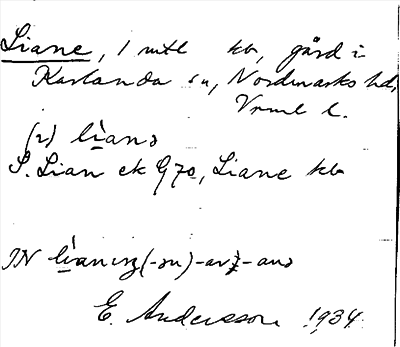 Liane, 1 mtl kb, gård i
Karlanda sn, Nordmarks hd,
Vrml l.
(2) lìanə
S. Lian ek G70, Liane kb
IN lìaning (-ən) -ar -anə
E. Andersson 1934